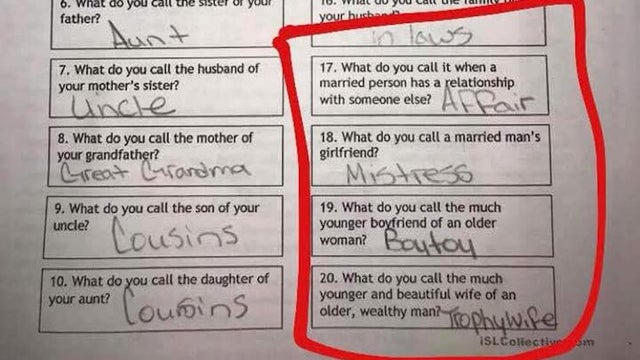 6. What do you call the sister of your
father?
Aunt
7. What do you call the husband of
your mother's sister?
Uncle
8. What do you call the mother of
your grandfather?
Great Grandma
9. What do you call the son of your
uncle?
Cousins
10. What do you call the daughter of
your aunt?
Cousins
16. What do you call the family
your husband?
in laws
17. What do you call it when a
married person has a relationship
with someone else? Affair
18. What do you call a married man's
girlfriend?
Mistress
19. What do you call the much
younger boyfriend of an older
woman? Boytoy
20. What do you call the much
younger and beautiful wife of an
older, wealthy man? Trophy Wife
iSLCollective.com